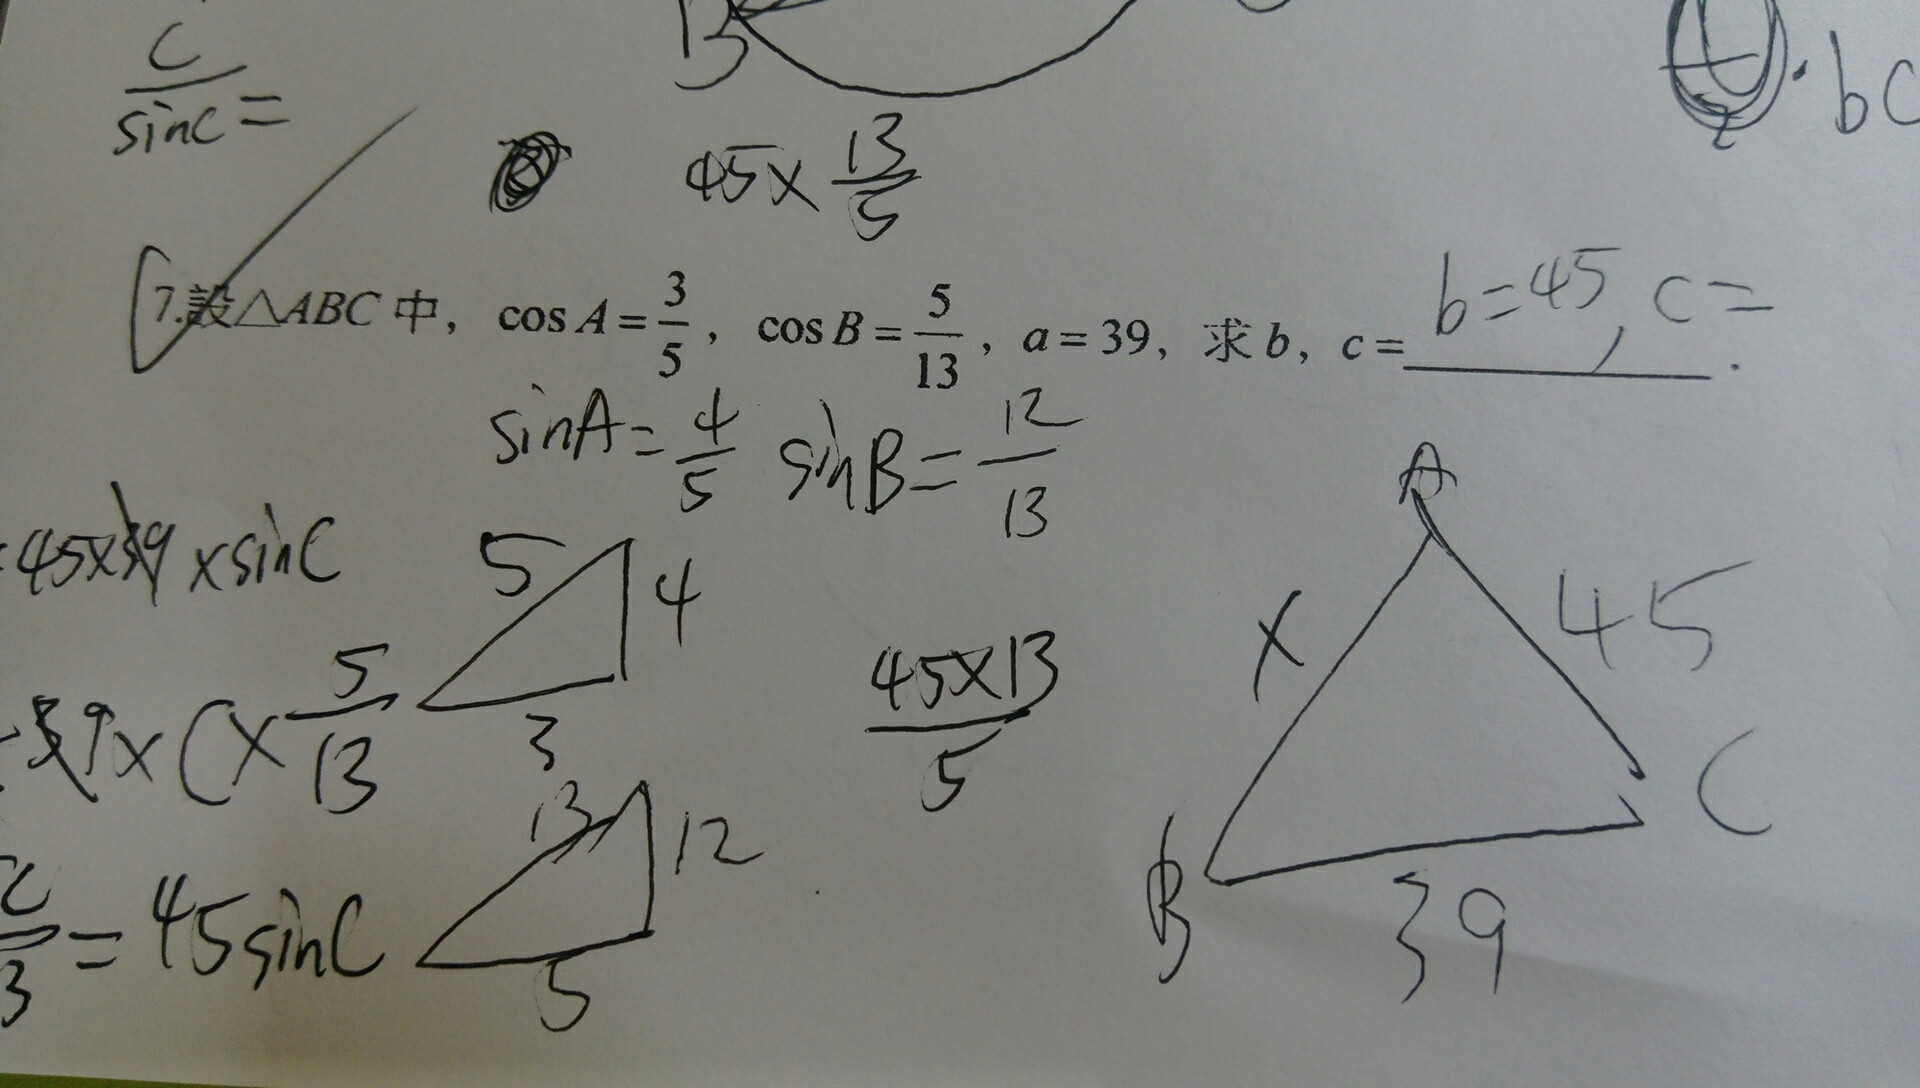 c/sinC=
B
bc
45×13/5
7.設△ABC中，cos A=3/5，cos B=5/13，a=39，求b，c=b=45, c=.
sinA=4/5 sinB=12/13
A
45×39×sinC
5 4 3
x 45
39×C×5/13
45×13/5
C
13 12 5
=45sinC
B 39